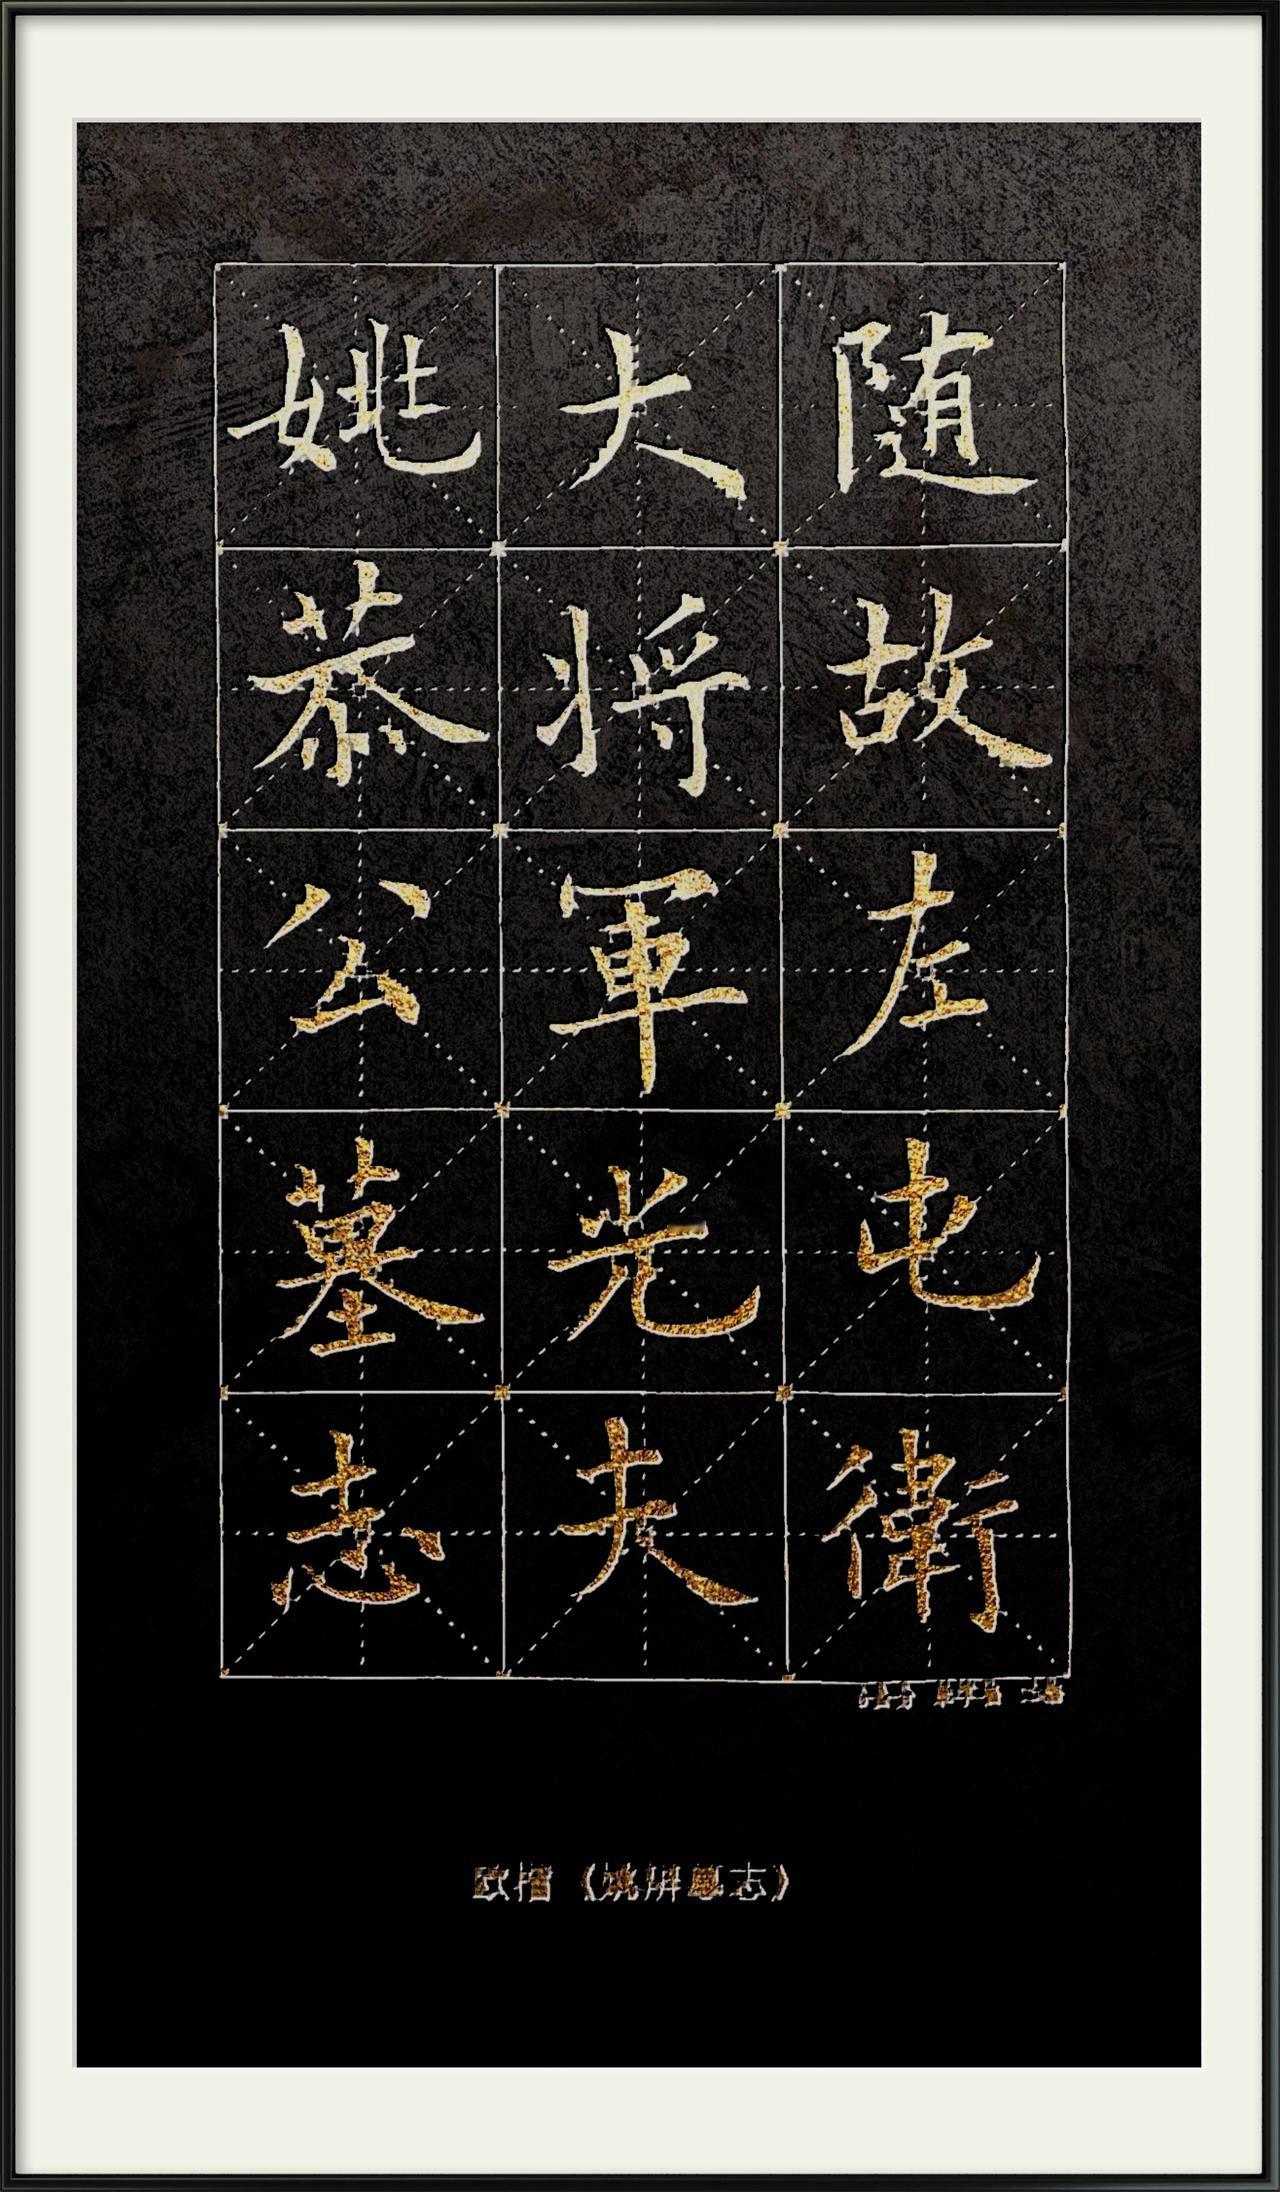 随故左屯衛
大将軍光夫
姚恭公墓志
欧楷《姚辨墓志》